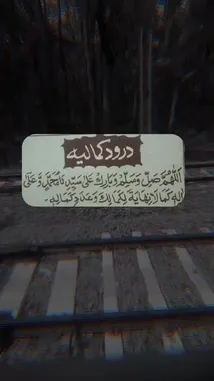 درود کمالیه
اَللّٰهُمَّ صَلِّ وَسَلِّمْ وَبَارِكْ عَلٰى سَيِّدِنَا مُحَمَّدٍ وَّعَلٰى
اٰلِهٖ كَمَا لَا نِهَايَةَ لِكَمَالِكَ وَعَدَدَ كَمَالِهٖ ۔